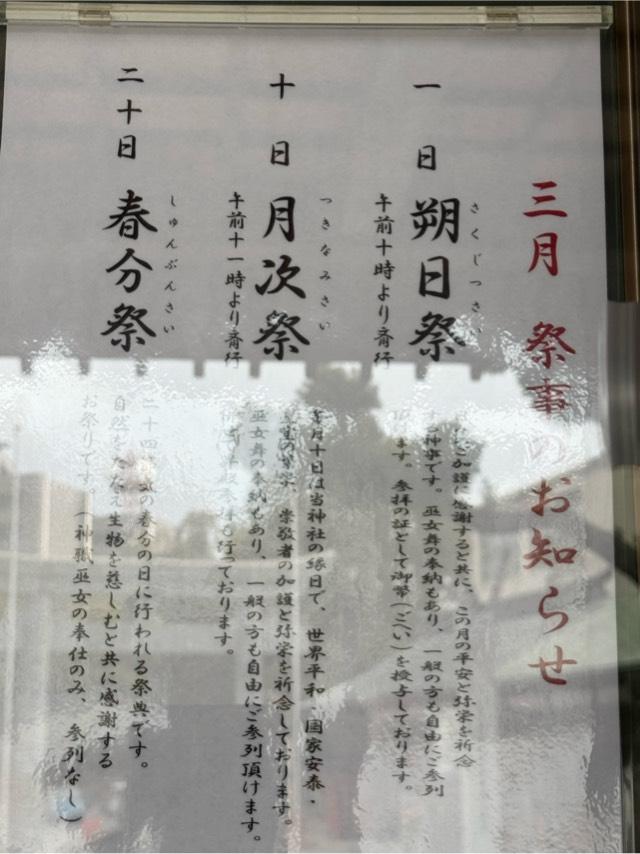 三月 祭事のお知らせ
一日 朔日祭
さくじつさい
午前十時より斉行
加護に感謝すると共に、この月の平安と弥栄を祈念
神事です。巫女舞の奉納もあり、一般の方も自由にご参列
ます。参拝の証として御幣(ごへい)を授与しております。
十日 月次祭
つきなみさい
午前十一時より斉行
月十日は当神社の縁日で、世界平和・国家安泰・
崇敬者の加護と弥栄を祈念しております。
巫女舞の奉納もあり、一般の方も自由にご参列頂けます。
参拝も行っております。
二十日 春分祭
しゅんぶんさい
二十四節気の春分の日に行われる祭典です。
自然をたたえ生物を慈しむと共に感謝する
お祭りです。(神職巫女の奉仕のみ、参列なし)